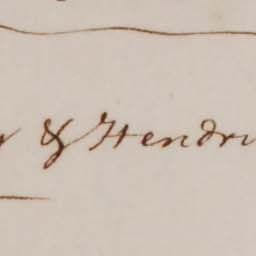 & Hendri